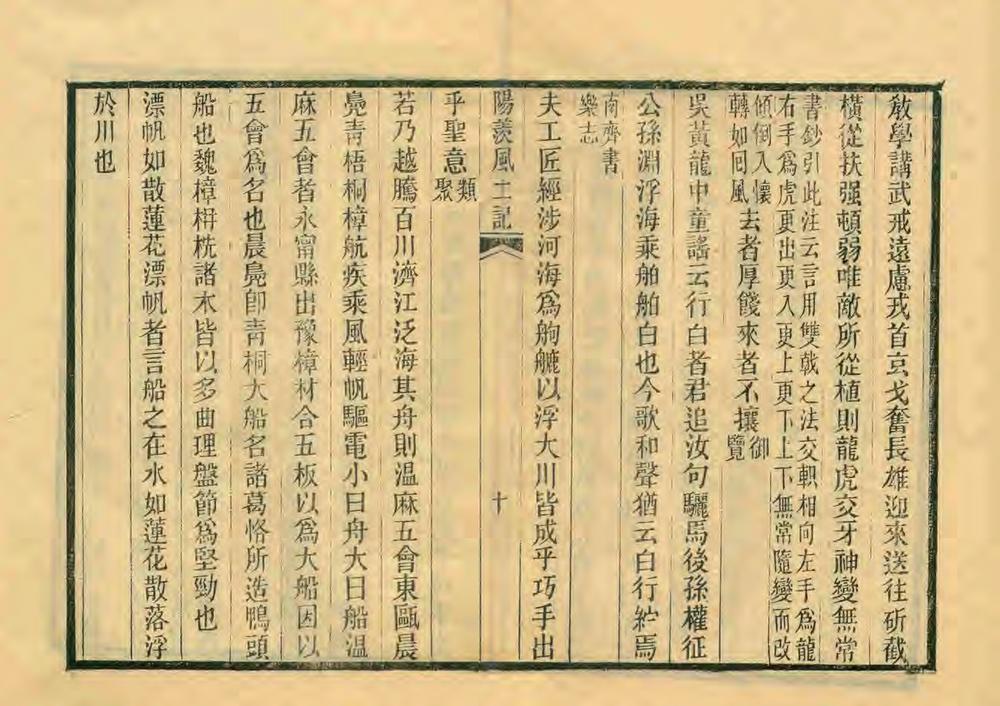 敎學講武戒遠慮戎首玄戈奮長雄迎來送往斫截
橫從扶强頓弱唯敵所從植則龍虎交牙神變無常
書鈔引此注云言用雙戟之法交軹相向左手爲龍
右手爲虎更出更入更上更下上下無常隨變而改
傾倒入懷
轉如回風
去者厚餞來者不攘
御
覽
吳黃龍中童謠云行白者君追汝句驪馬後孫權征
公孫淵浮海乘舶舶白也今歌和聲猶云白行紵焉
南齊書
樂志
夫工匠經涉河海爲舸艫以浮大川皆成乎巧手出
陽羨風土記
十
乎聖意
類
聚
若乃越騰百川濟江泛海其舟則温麻五會東甌晨
鳧靑梧桐樟航疾乘風輕帆驅電小曰舟大曰船温
麻五會者永甯縣出豫樟材合五板以爲大船因以
五會爲名也晨鳧卽靑桐大船名諸葛恪所造鴨頭
船也魏樟枏㭠諸木皆以多曲理盤節爲堅勁也
漂帆如散蓮花漂帆者言船之在水如蓮花散落浮
於川也